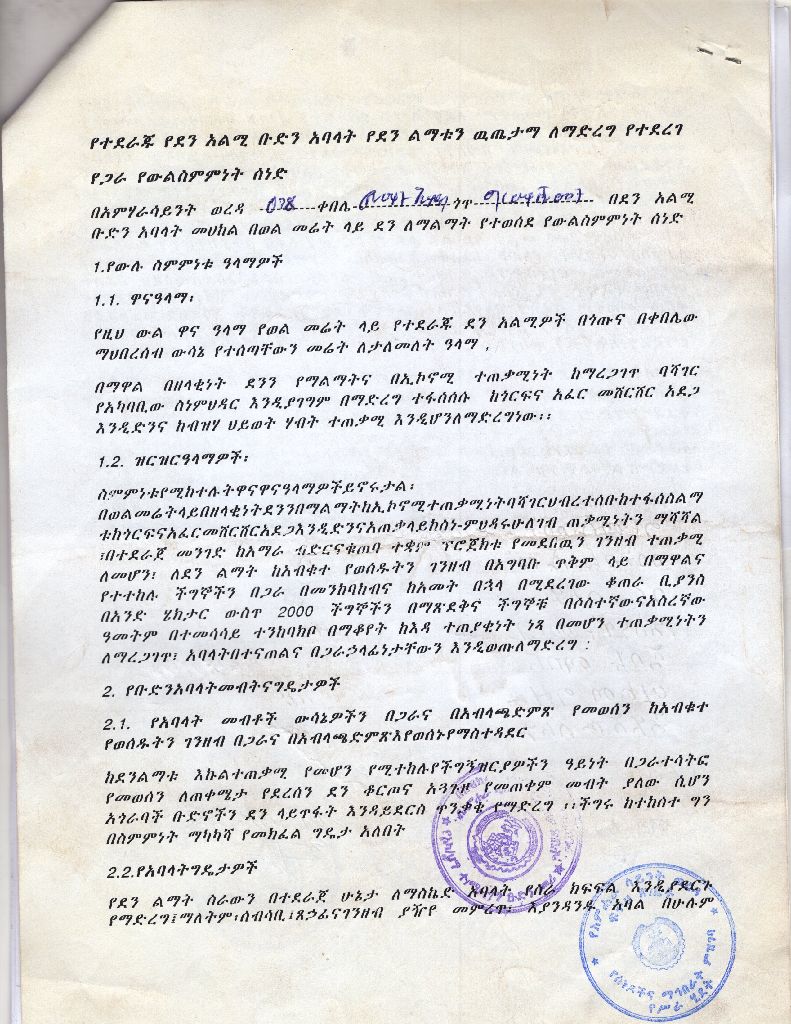 የተደራጁ የደን አልሚ ቡድን አባላት የደን ልማቱን ዉጤታማ ለማድረግ የተደረገ
የጋራ የውልስምምነት ሰነድ
በአምሃራሳይንት ወረዳ 028 ቀበሌ ጎጥ በደን አልሚ
ቡድን አባላት መሀከል በወል መሬት ላይ ደን ለማልማት የተወሰደ የውልስምምነት ሰነድ
1.የውሉ ስምምነቱ ዓላማዎች
1.1. ዋናዓላማ፡
የዚህ ውል ዋና ዓላማ የወል መሬት ላይ የተደራጁ ደን አልሚዎች በጎጡና በቀበሌው
ማህበረሰብ ውሳኔ የተሰጣቸውን መሬት ለታለመለት ዓላማ ,
በማዋል በዘላቂነት ደንን የማልማትና በኢኮኖሚ ተጠቃሚነት ከማረጋገጥ ባሻገር
የአካባቢው ስነምህዳር እንዲያገግም በማድረግ ተፋሰሰሱ ከጎርፍና አፈር መሸርሸር አደጋ
እንዲድንና ከብዝሃ ህይወት ሃብት ተጠቃሚ እንዲሆንለማድረግነው፡፡
1.2. ዝርዝርዓላማዎች፡
ስምምነቱየሚከተሉትዋናዋናዓላማዎችይኖሩታል፡
በወልመሬትላይበዘላቂነትደንንበማልማትከኢኮኖሚተጠቃሚነትባሻገርህብረተሰቡከተፋሰስልማ
ቱከጎርፍናአፈርመሸርሸርአደጋእንዲድንናአጠቃላይከስነ-ምህዳሩሁለገብ ጠቃሚነትን ማሻሻል
፣በተደራጀ መንገድ ከአማራ ብድርናቁጠባ ተቋም ፕሮጀክቱ የመደበዉን ገንዘብ ተጠቃሚ
ለመሆን፣ ለደን ልማት ከአብቁተ የወሰዱትን ገንዘብ በአግባቡ ጥቅም ላይ በማዋልና
የተተከሉ ችግኞችን በጋራ በመንከባከብና ከአመት በኋላ በሚደረገው ቆጠራ ቢያንስ
በአንድ ሄክታር ውስጥ 2000 ችግኞችን በማጽደቅና ችግኞቹ በሶስተኛውናአስረኛው
ዓመትም በተመሳሳይ ተንከባክቦ በማቆየት ከእዳ ተጠያቂነት ነጻ በመሆን ተጠቃሚነትን
ለማረጋገጥ፣ አባላትበተናጠልና በጋራኃላፊነታቸውን እንዲወጡለማድረግ :
2. የቡድንአባላትመብትናግዴታዎች
2.1. የአባላት መብቶች ውሳኔዎችን በጋራና በአብላጫድምጽ የመወሰን ከአብቁተ
የወሰዱትን ገንዘብ በጋራና በአብላጫድምጽእየወሰኑየማስተዳደር
ከደንልማቱ እኩልተጠቃሚ የመሆን የሚተከሉየችግኝዝርያዎችን ዓይነት በጋራተሳትፎ
የመወሰን ለጠቀሜታ የደረሰን ደን ቆርጦና አጓጉዞ የመጠቀም መብት ያለው ሲሆን
አጎራባች ቡድኖችን ደን ላይጥፋት እንዳይደርስ ጥንቃቄ የማድረግ ፡፡ችግሩ ከተከሰተ ግን
በስምምነት ማካካሻ የመክፈል ግዴታ አለበት
2.2.የአባላትግዴታዎች
የደን ልማት ስራውን በተደራጀ ሁኔታ ለማስኬድ አባላት የስራ ክፍፍል እንዲያደርጉ
የማድረግ፤ማለትም፡ሰብሳቢ፣ጸኃፊናገንዘብ ያዥየ መምረጥ፡ እያንዳንዱ አባል በሁሉም